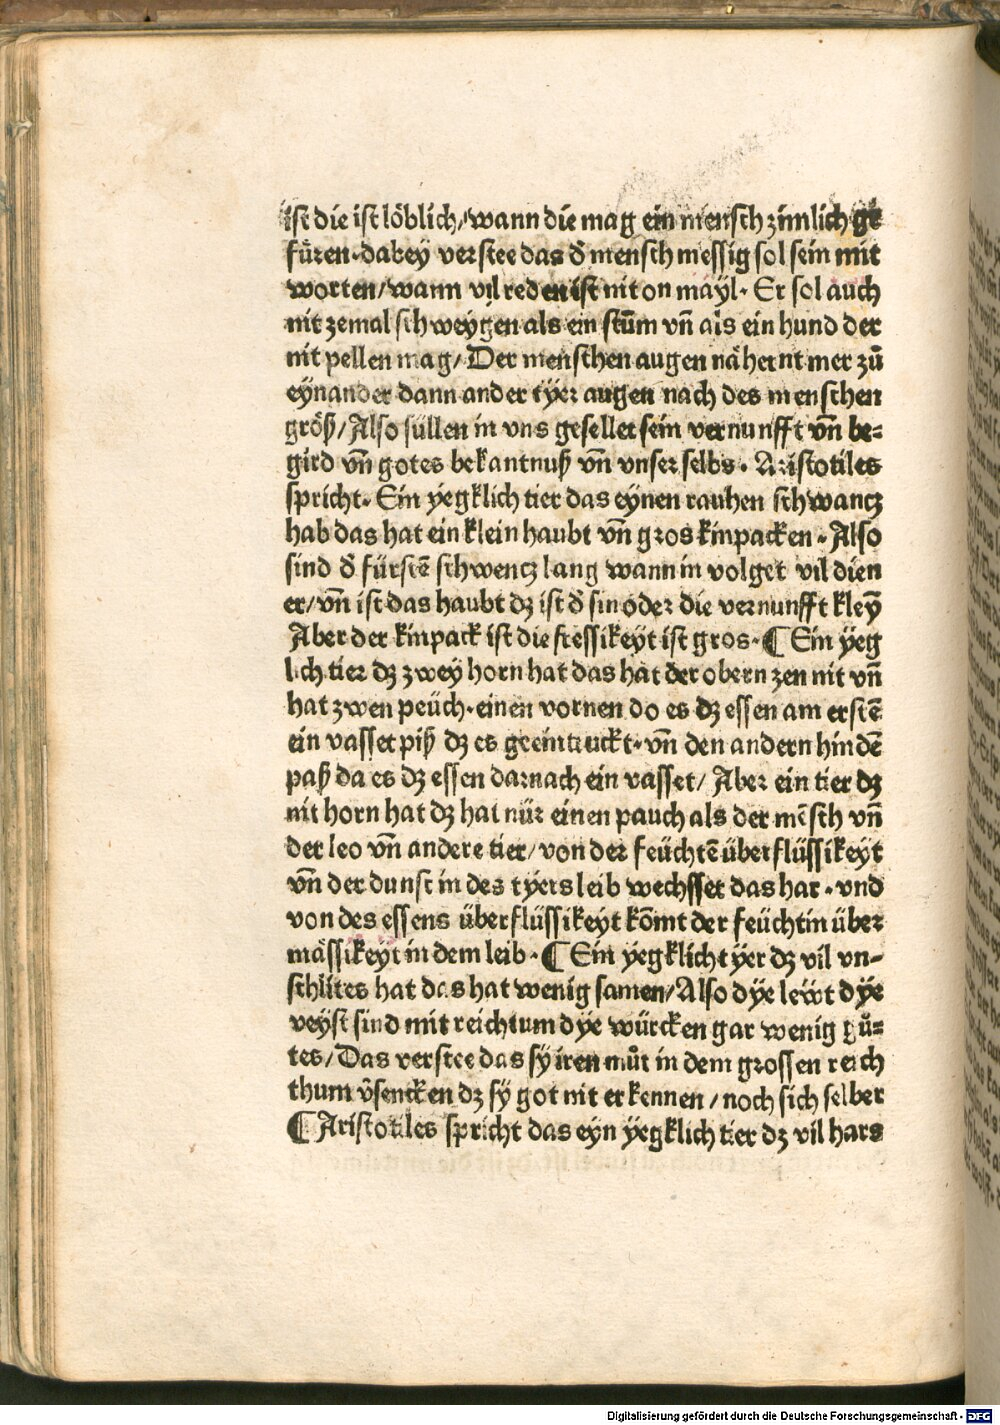 ist die ist löblich/wann die mag ein mensch zimlich ge
füren·dabey verstee das d̕ mensch messig sol sein mit
worten/wann vil reden ist nit on mayl· Er sol auch
nit zemal schweygen als ein stūm vn̄ als ein hund der
nit pellen mag/Der menschen augen nähernt mer zů
eynander dann ander tÿer augen nach des menschen
größ/Also süllen in vns gesellet sein vernunfft vn̄ be-
gird vn̄ gotes bekantnuß vn̄ vnser selbs· Aristotiles
spricht· Ein ÿegklich tier das eynen rauhen schwantz
hab das hat ein klein haubt vn̄ gros kinpacken·Also
sind d̕ fürstē schwentz lang wann in volget vil dien
er/vn̄ ist das haubt dz ist d̕ sin oder die vernunfft kleȳ
Aber der kinpack ist die fressikeyt ist gros·¶Ein ÿeg
lich tier dz zwey horn hat das hat der obern zen nit vn̄
hat zwen peüch·einen vornen do es dz essen am erstē
ein vasset piß dz es geeintruckt·vn̄ den andern hindē
paß da es dz essen darnach ein vasset/ Aber ein tier dz
nit horn hat dz hat nür einen pauch als der mēsch vn̄
der leo vn̄ andere tier/von der feüchtē überflüssikeyt
vn̄ der dunst in des tyers leib wechsset das har·vnd
von des essens überflüssikeyt kōmt der feüchtin über
mässikeyt in dem leib·¶Ein ÿegklicht ÿer dz vil vn-
schlites hat das hat wenig samen/Also dÿe lewt dÿe
veyst sind mit reichtum dÿe würcken gar wenig gů-
tes/Das verstee das sÿ iren můt in dem grossen reich
thum v̄sencken dz sÿ got nit erkennen/noch sich selber
¶Aristotiles spricht das eyn ÿegklich tier dz vil hars
Digitalisierung gefördert durch die Deutsche Forschungsgemeinschaft - DFG